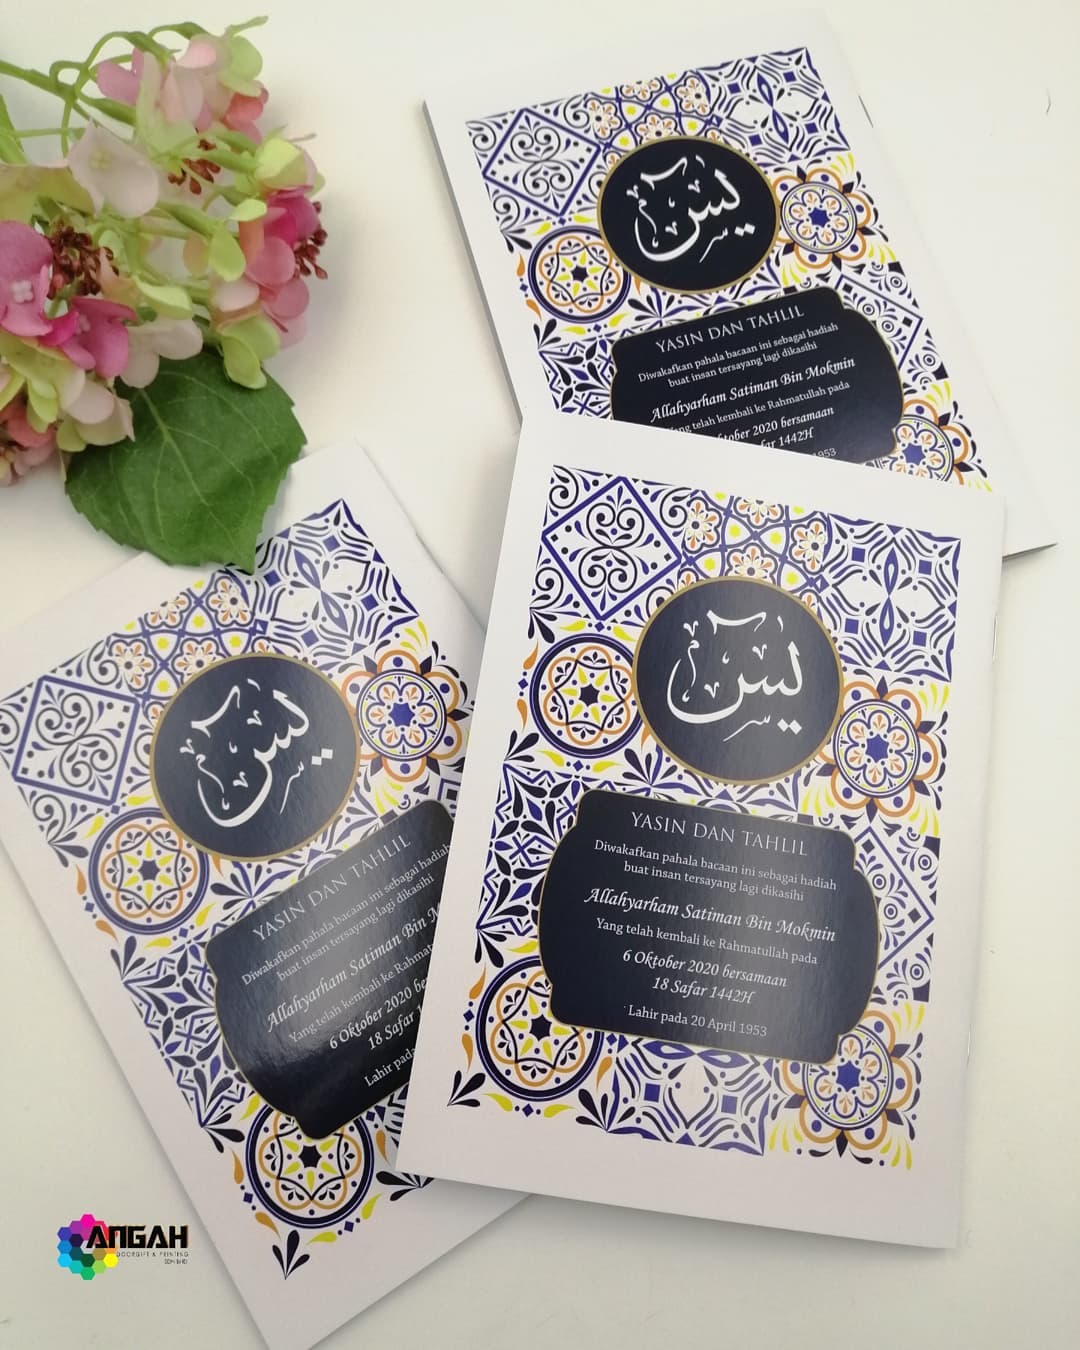 يس
YASIN DAN TAHLIL
Diwakafkan pahala bacaan ini sebagai hadiah
buat insan tersayang lagi dikasihi
Allahyarham Satiman Bin Mokmin
Yang telah kembali ke Rahmatullah pada
tober 2020 bersamaan
far 1442H
1953
يس
YASIN DAN TAHLIL
Diwakafkan pahala bacaan ini sebagai hadiah
buat insan tersayang lagi dikasihi
Allahyarham Satiman Bin Mokmin
Yang telah kembali ke Rahmatullah pada
6 Oktober 2020 bersamaan
18 Safar 1442H
Lahir pada 20 April 1953
يس
YASIN DAN TAHLIL
Diwakafkan pahala bacaan ini sebagai hadiah
buat insan tersayang lagi dikasihi
Allahyarham Satiman Bin M
Yang telah kembali ke Rahmat
6 Oktober 2020 be
18 Safar 1
Lahir pada
ANGAH
DOORGIFT & PRINTING
SDN BHD